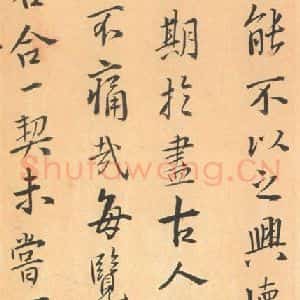 能不以之興懷
期於盡古人
不痛哉每覽
合一契未嘗
Shufawang.CN